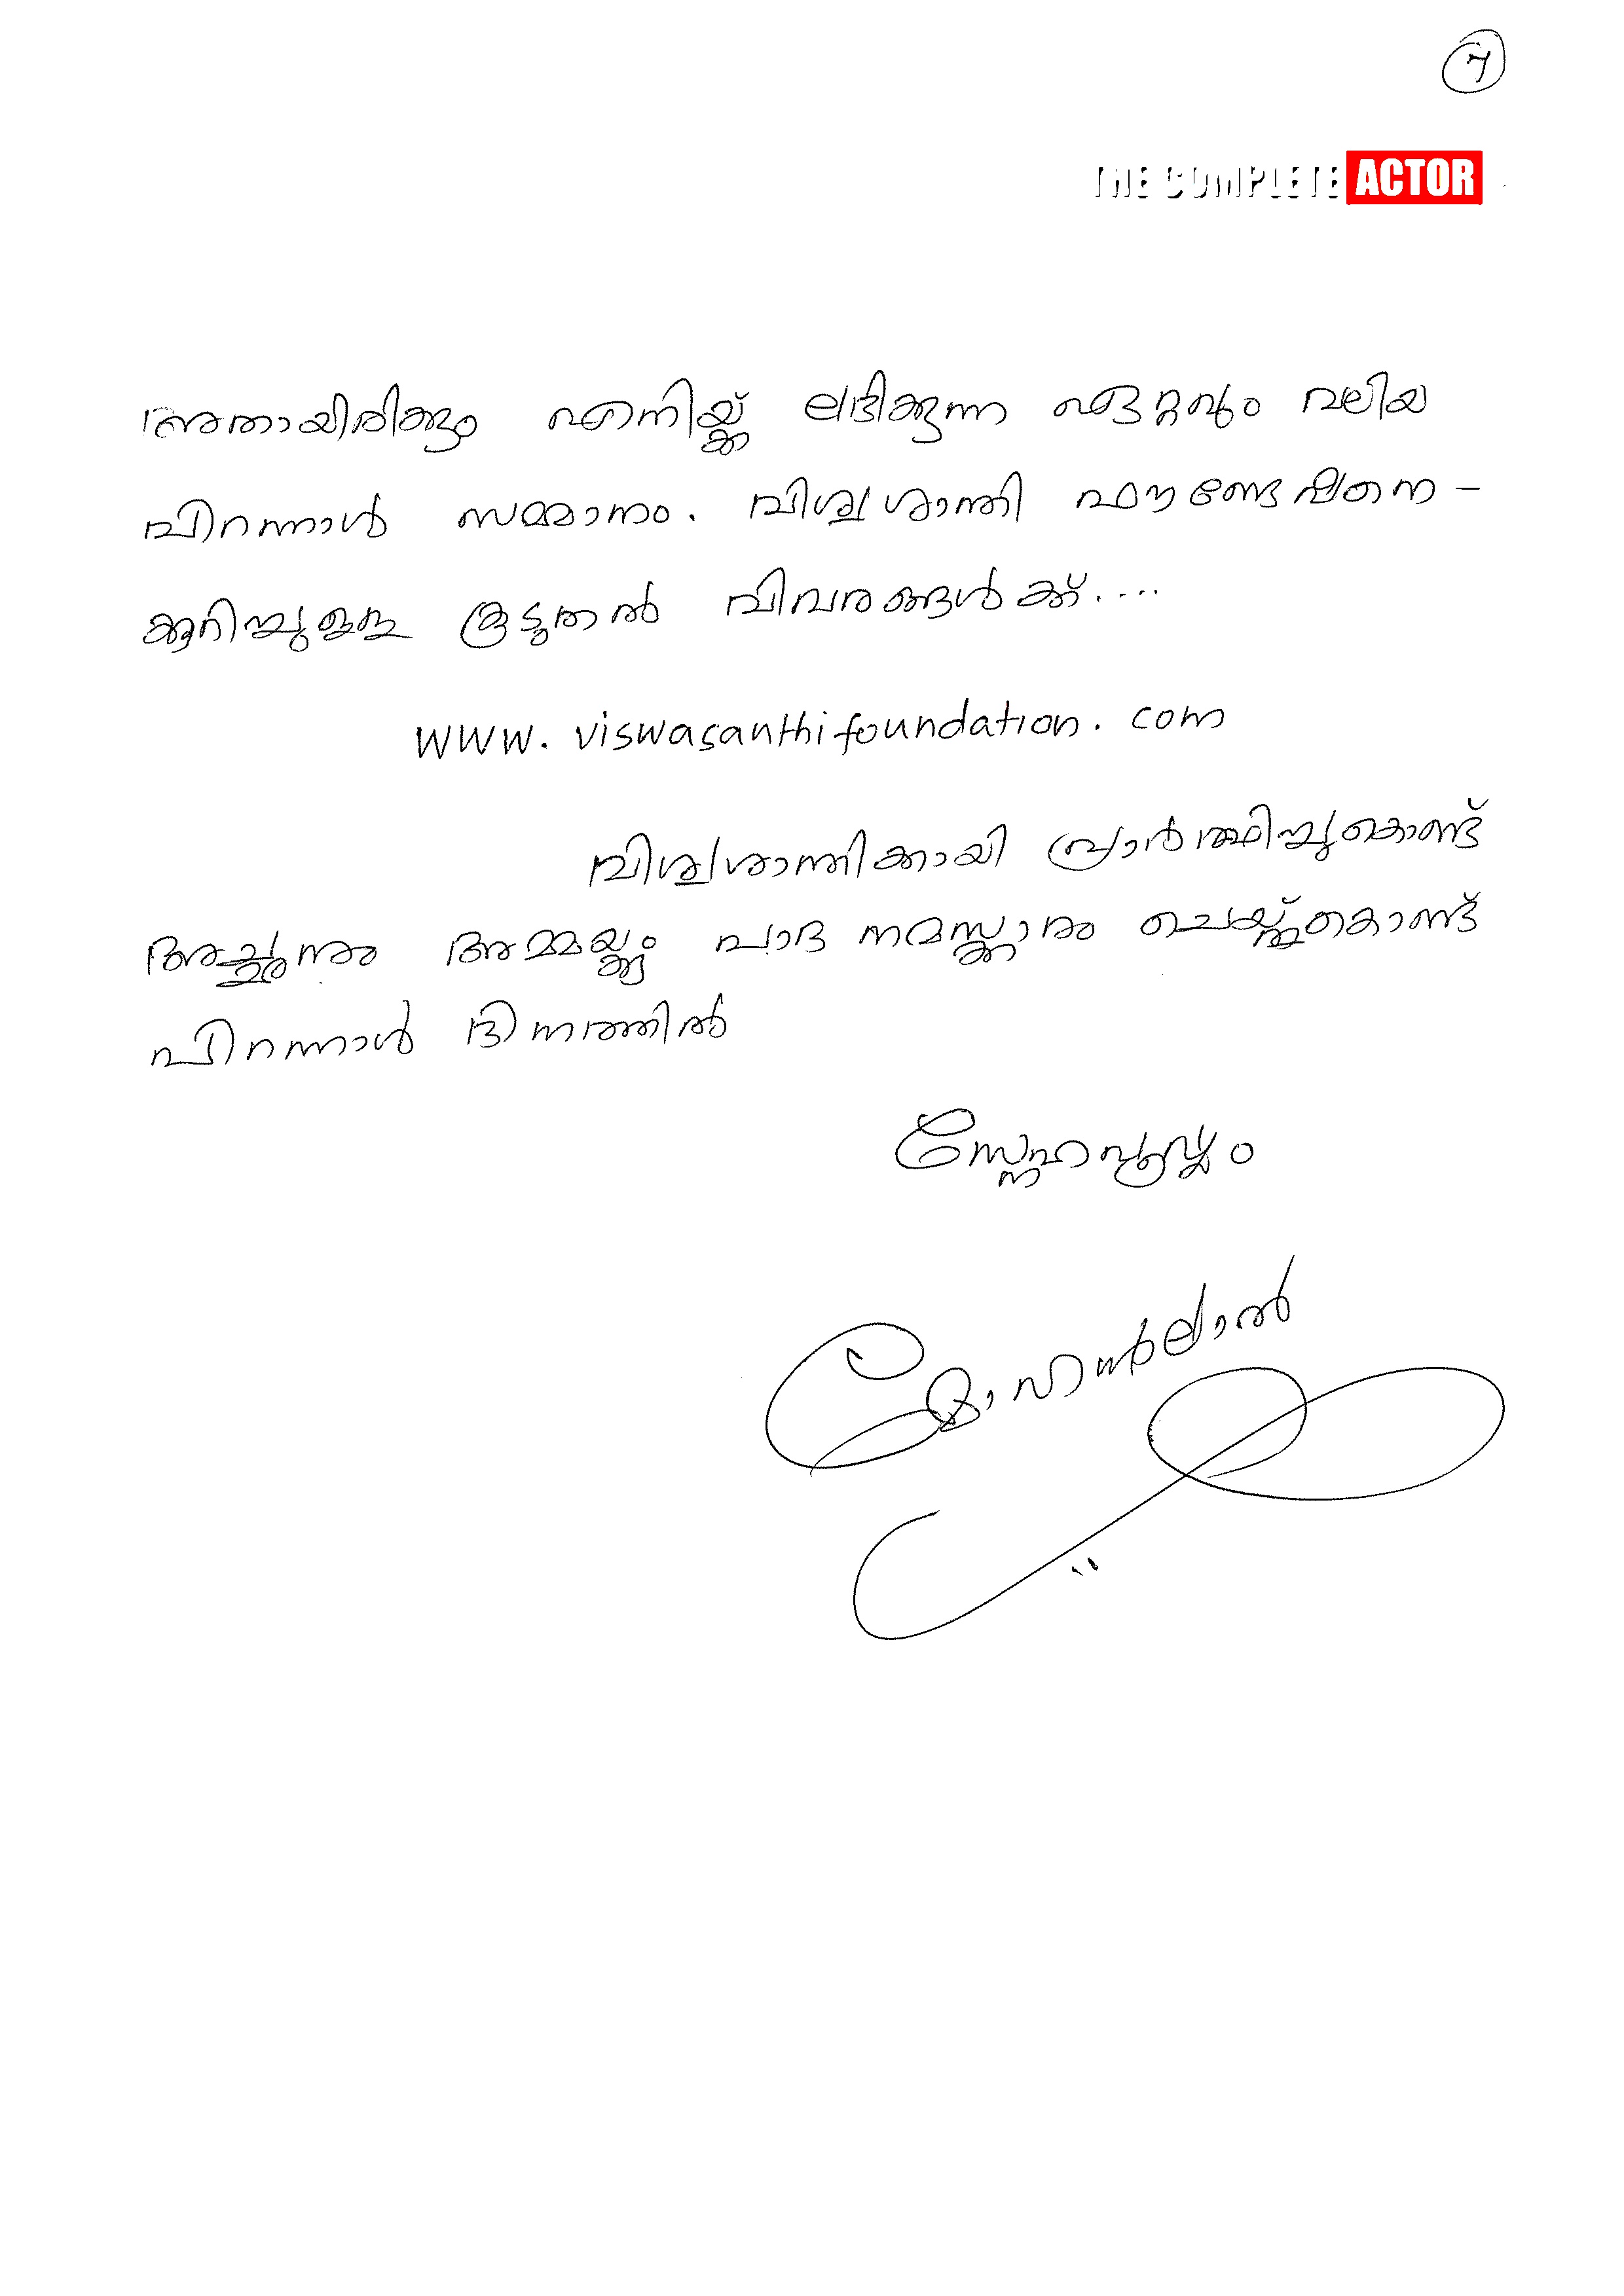 7
THE COMPLETE ACTOR
അതായിരിക്കും എനിയ്ക്ക് ലഭിക്കുന്ന ഏറ്റവും വലിയ
പിറന്നാൾ സമ്മാനം. വിശ്വശാന്തി ഫൗണ്ടേഷനെ -
ക്കുറിച്ചുള്ള കൂടുതൽ വിവരങ്ങൾക്ക്....
www.viswasanthifoundation.com
വിശ്വശാന്തിക്കായി പ്രാർത്ഥിച്ചുകൊണ്ട്
അച്ഛനും അമ്മയ്ക്കും പാദ നമസ്ക്കാരം ചെയ്തുകൊണ്ട്
പിറന്നാൾ ദിനത്തിൽ
സ്നേഹപൂർവ്വം
മോഹൻലാൽ